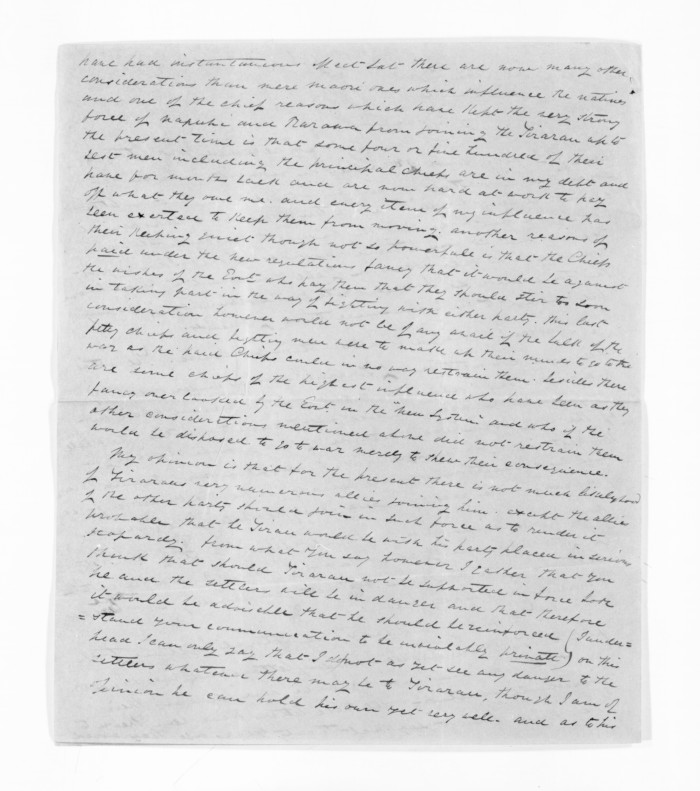 have had instantaneous effect but there are now many other
considerations than mere maori ones which influence the natives
and one of the chief reasons which have kept the very strong
force of Napuhi and Rarawa from joining the Tirarau up to
the present time is that some four or five hundred of their
best men including the principal Chiefs are in my debt and
have for months back and are now hard at work to pay
off what they owe me. and every item of my influence has
been exerted to keep them from moving. another reasons of
their keeping quiet though not so powerfull is that the Chiefs
paid under the new regulations fancy that it would be against
the wishes of the Govt who pay them that they should stir so soon
in taking part in the way of fighting with either party. this last
consideration however would not be of any avail if the bulk of the
petty chiefs and fighting men were to make up their minds to go to the
war as the paid Chiefs could in no way restrain them. besides there
are some chiefs of the highest influence who have been as they
fancy over looked by the Govt in the "new system" and who if the
other considerations mentioned above did not restrain them
would be disposed to go to war merely to shew their consequence.
My opinion is that for the present there is not much likelyhood
of Tiraraus very numerous allies joining him. except the allies
of the other party should join in such force as to render it
probable that he Tirau would be with his party placed in serious
jeopardy. from what you say however I gather that you
think that should Tirarau not be supported in force both
he and the settlers will be in danger and that therefore
it would be adviseble that he should be reinforced (I under=
=stand your communication to be inviolably private) on this
head I can only say that I do not as yet see any danger to the
settlers whatever there may be to Tirarau, though I am of
opinion he can hold his own yet very well. and as to his